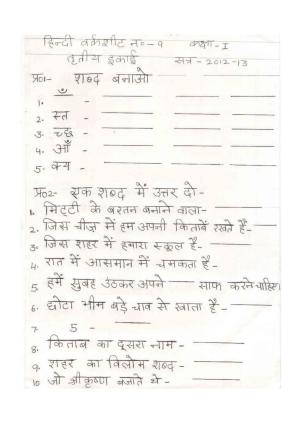 हिन्दी वर्कशीट नं०-१ कक्षा-I
तृतीय इकाई सत्र-2012-13
प्र०1- शब्द बनाओ
1. ँ -
2. स्त -
3. च्छ -
4. आँ -
5. क्य -
प्र०2- एक शब्द में उत्तर दो-
1. मिट्टी के बरतन बनाने वाला-
2. जिस चीज़ में हम अपनी किताबें रखते हैं-
3. जिस शहर में हमारा स्कूल है-
4. रात में आसमान में चमकता है-
5. हमें सुबह उठकर अपने साफ करने चाहिए।
6. छोटा भीम बड़े चाव से खाता है-
7. 5 -
8. किताब का दूसरा नाम-
9. शहर का विलोम शब्द-
10. जो श्रीकृष्ण बजाते थे-